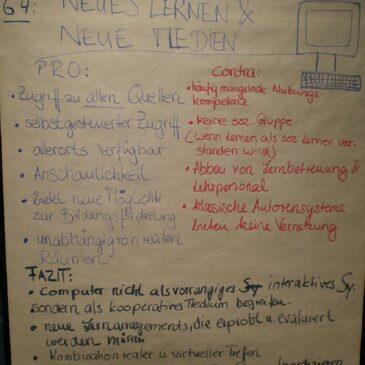 G4: NEUES LERNEN &
NEUE MEDIEN
PRO:
• Zugriff zu allen Quellen
• selbstgesteuerter Zugriff
• allerorts verfügbar
• Anschaulichkeit
• bietet neue Möglichk.
zur Bildungsförderung
• unabhängig von realen
Räumen
Contra:
• häufig mangelnde Nutzungs
kompetenz
• keine soz. Gruppe
(wenn Lernen als soz. Lernen ver-
standen wird)
• Abbau von Lernbetreuung &
Lehrpersonal
• klassische Autorensysteme
bieten keine Vernetzung
FAZIT:
• Computer nicht als vorrangiges interaktives Sy.
sondern als kooperatives Medium begreifen.
• neue Lernarrangements, die erprobt u. evaluiert
werden müssen
• Kombination realer u. virtueller Treffen